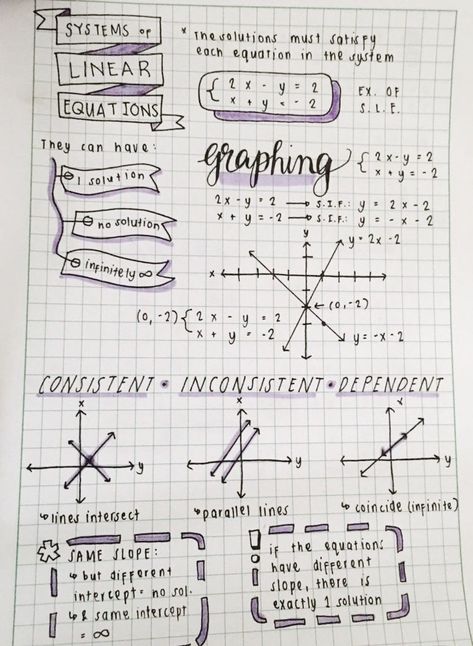 SYSTEMS OF
LINEAR
EQUATIONS
* The solutions must satisfy
each equation in the system
{ 2x - y = 2
x + y = -2
EX. OF
S.L.E.
They can have:
⊖ 1 solution
⊖ no solution
⊖ infinitely ∞
Graphing
{ 2x - y = 2
x + y = -2
2x - y = 2 → S.I.F.: y = 2x - 2
x + y = -2 → S.I.F.: y = -x - 2
y
y = 2x - 2
x
← (0, -2)
(0, -2) { 2x - y = 2
x + y = -2
y = -x - 2
CONSISTENT • INCONSISTENT • DEPENDENT
x
x
x
y
y
y
↳ lines intersect
↳ parallel lines
↳ coincide (infinite)
* SAME SLOPE:
↳ but different
intercept = no sol.
↳ & same intercept
= ∞
! if the equations
have different
slope, there is
exactly 1 solution